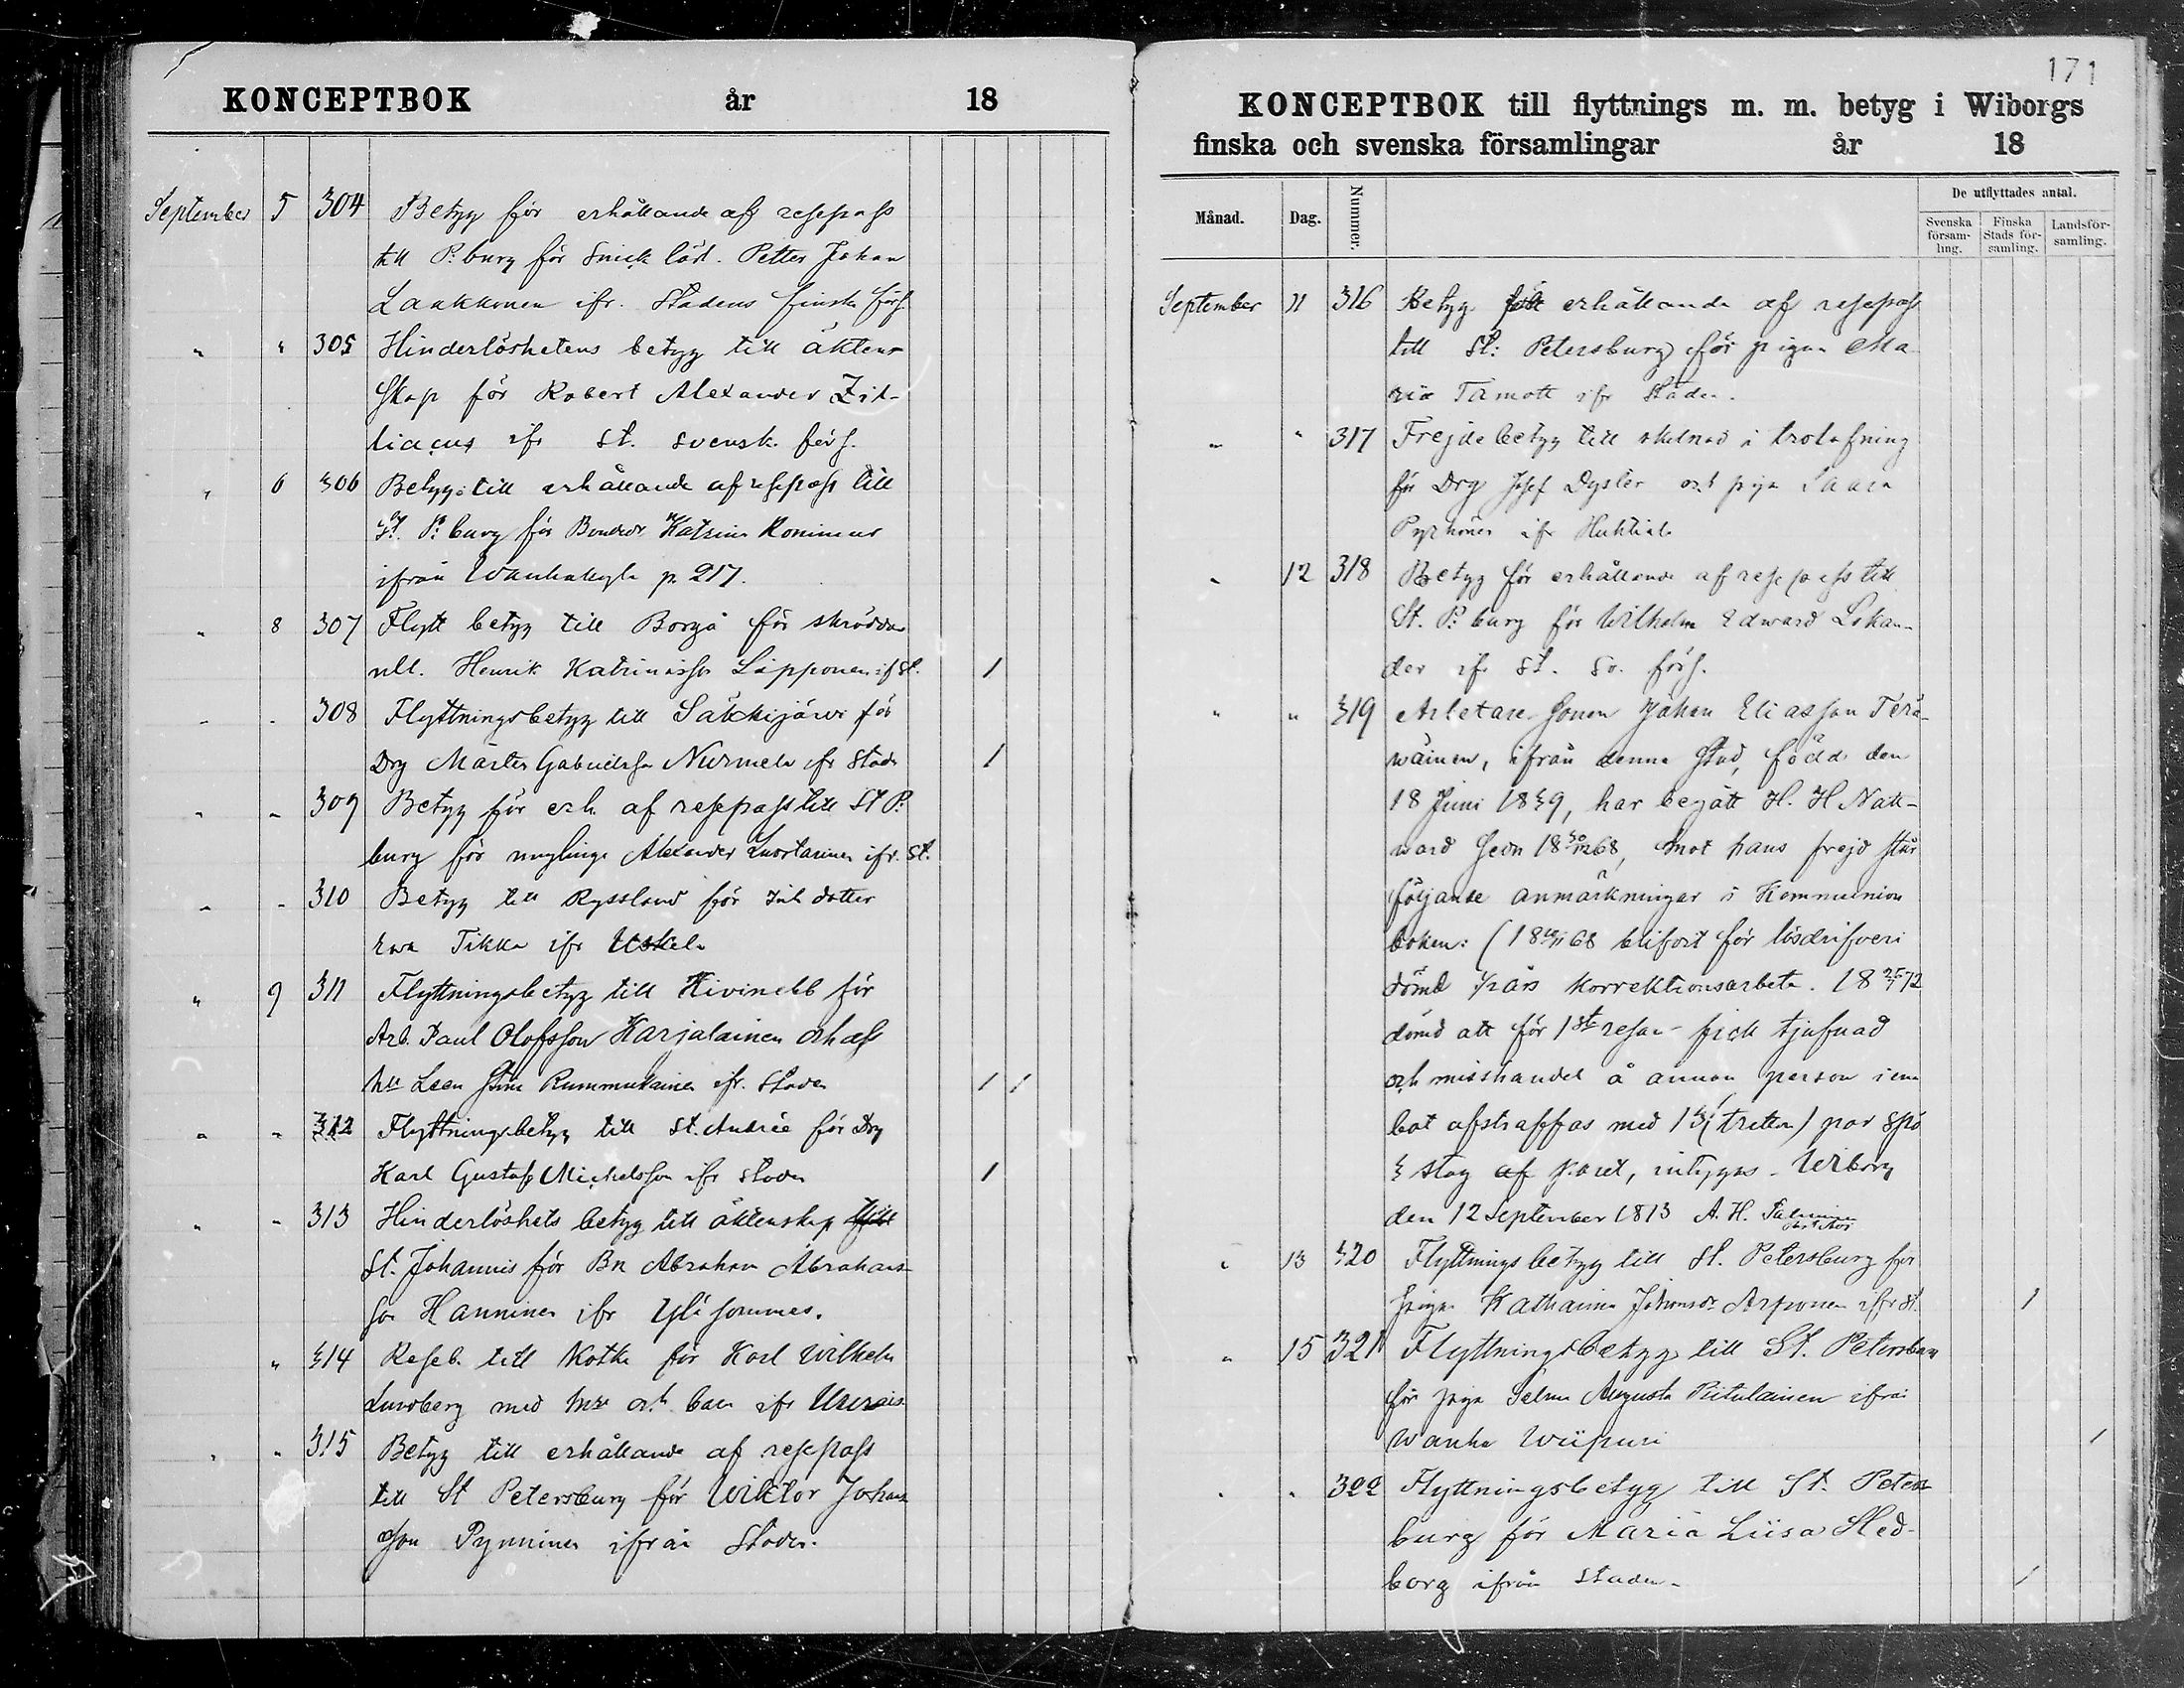 KONCEPTBOK år 18
September 5 304 Betyg för erhållande af resepass
till P:burg för Snick lärl. Petter Johan
Laakkonen ifr. Stadens finska förs.
" " 305 Hinderlöshetens betyg till äkten-
skap för Robert Alexander Zil-
liacus ifr St. svensk. förs.
" 6 306 Betyg till erhållande af resepass till
St. P:burg för Katrina Roninen
ifrån Wanhakylä p. 217.
" 8 307 Flytt betyg till Borgå för skrädda-
Henrik Katrinasson Lapponen if St. 1
" " 308 Flyttningsbetyg till Säkkijärwi för
Drg Mårten Gabrielsson Nurmela ifr Staden 1
" " 309 Betyg för erh. af resepass till St P:
burg för ynglinge Alexander Luostarinen ifr. St.
" " 310 Betyg till Ryssland för Inh dotter
Ewa Tikka ifr Uskela
" 9 311 Flyttningsbetyg till Kivinebb för
Arb. Paul Olofsson Karjalainen och dess
hu Leen Stina Rummukainen ifr. Staden 1 1
" " 312 Flyttningsbetyg till St. Andreæ för Drg
Karl Gustaf Michelsson ifr Staden 1
" " 313 Hinderlöshets betyg till äktenskap till
St. Johannis för Bn Abraham Abrahams-
son Hanninen ifr Yli sommes.
" 314 Reseb. till Kotka för Karl Wilhelm
Lundberg med hu och barn ifr
" " 315 Betyg till erhållande af resepass
till St Petersburg för Wiktor Johans
son Pynninen ifrån Staden.
171
KONCEPTBOK till flyttnings m. m. betyg i Wiborgs
finska och svenska församlingar år 18
Månad. Dag. Nummer. De utflyttades antal.
Svenska församling. Finska Stads församling. Landsförsamling.
September 11 316 Betyg erhållande af resepass
till St: Petersburg för pigan Ma
ria Tamott ifr Staden.
" " 317 Frejdebetyg till skilnad i trolofning
för Drg Josef Dysler och piga Laara
Pyrhönen ifr Huhtiala
" 12 318 Betyg för erhållande af resepass till
St. P:burg för Wilhelm Edward Lokan-
der ifr St. Sv. förs.
" " 319 Arbetare sonen Johan Eliasson Terä-
wäinen, ifrån denna Stad, född den
18 Juni 1839, har begått H. H Natt-
ward sedn 18 30/12 68, Mot hans frejd står
följande anmärkningar i Kommunion
boken: (18 68 blifvit för lösdrifveri
dömd 1/2 års korrektionsarbete. 18 72
dömd att för 1sta resan fick tjufnad
och misshandel å annan person i en
bot afstraffas med 13 (tretton) par spö
3 slag af paret, intygas. Wiborg
den 12 September 1873 A. H.
" 13 320 Flyttningsbetyg till St. Petersburg för
pigan Katharina Johansdr Arponen ifr St. 1
" 15 321 Flyttningsbetyg till St. Petersburg
för piga Selma Augusta Piitulainen ifrån
Wanha Wiipuri 1
" " 322 Flyttningsbetyg till St. Peters
burg för Maria Liisa Hed-
borg ifrån Staden. 1